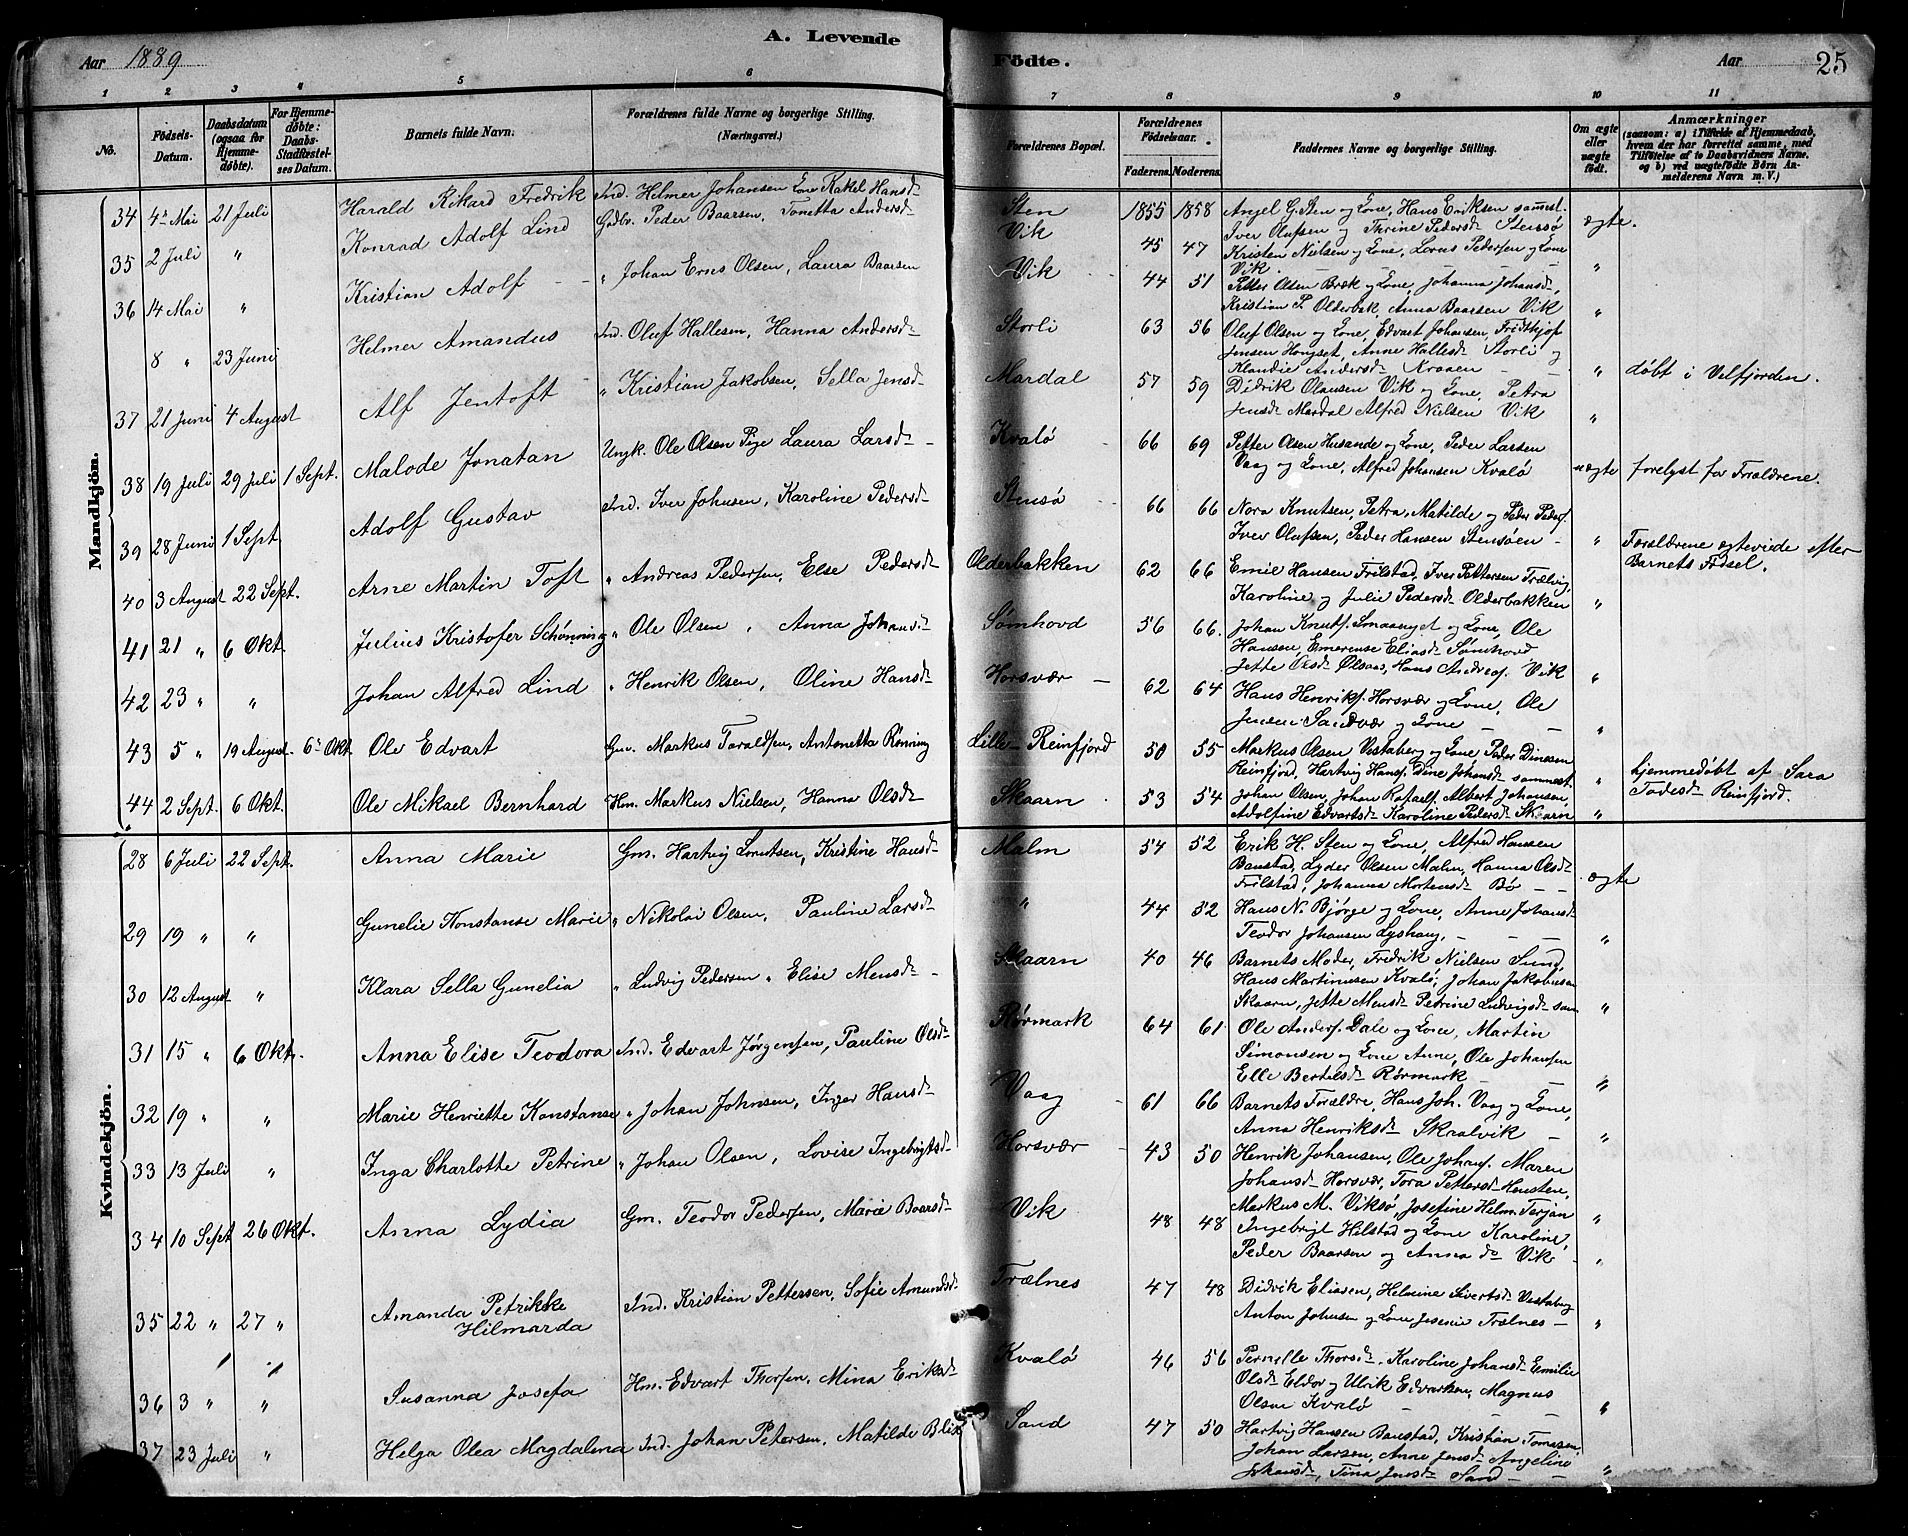 Aar 1889
A. Levende
Födte.
Aar
25
1 2 3 4 5 6 7 8 9 10 11
No.
Födsels-Datum.
Daabsdatum (ogsaa for Hjemmedøbte).
For Hjemmedøbte: Daabs-Stadfæstelses Datum.
Barnets fulde Navn.
Forældrenes fulde Navne og borgerlige Stilling. (Næringsvei.)
Forældrenes Bopæl.
Forældrenes Födselsaar.
Faderens Moderens
Faddernes Navne og borgerlige Stilling.
Om ægte eller uægte født.
Anmærkninger
(saasom: a) i Tilfælde af Hjemmedaab, hvem der har forrettet samme, med Tilföielse af to Daabsvidners Navne, og b) ved uægtefödte Börn Anmelderens Navn m. V.)
Mandkjön.
34 4de Mai 21 Juli Harald Rikard Fredrik Ind. Helmer Johansen Kone Rakel Hansd. Sten 1855 1858 Angel G. Sten og Kone, Hans Eriksen sammest. ægte.
Iver Olufsen og Thrine Pedersd. Stensø
35 2 Juli " Konrad Adolf Lind Gdbr. Peder Baarsen, Tonetta Andersd. Vik 45 47 Kristen Nielsen og Kone, Lorns Pedersen og Kone
Vik. "
36 14 Mai " Kristian Adolf " Johan Erns Olsen, Laura Baarsen Vik 44 51 Petter Olsen Bræk og Kone, Johanna Johansd.,
Kristian P. Olderbak, Anna Baarsen Vik "
8 " 23 Juni Helmer Amandus Ind. Oluf Hallesen, Hanna Andersd. Storli 63 56 Oluf Olsen og Kone, Edvart Johansen, Fridthjof
Jensen Hongset, Anne Hallesd. Storli og
Klandie Andersd. Kroaen " døbt i Velfjorden.
37 21 Juni 4 August Alf Jentoft " Kristian Jakobsen, Sella Jensd. Mardal 57 59 Didrik Olausen Vik og Kone, Petra
Jensd. Mardal Alfred Nielsen Vik "
38 19 Juli 29 Juli 1 Sept. Malode Jonatan Ungk. Ole Olsen Pige Laura Larsd. Kvalø 66 69 Petter Olsen Husande og Kone, Peder Larsen
Vaag og Kone, Alfred Johansen Kvalø uægte forelyst for Forældrene.
39 28 Juni 1 Sept Adolf Gustav Ind. Iver Johnsen, Karoline Pedersd. Stensø 66 66 Nora Knutsen, Petra, Matilde og Peder Peders.
Iver Olufsen, Peder Hansen Stensøen " Forældrene egteviede efter
Barnets Fødsel.
40 3 August 22 Sept. Arne Martin Toft " Andreas Pedersen, Else Pedersd. Olderbakken 62 66 Emil Hansen Frilstad, Iver Pettersen Trælvig,
Karoline og Julie Pedersd. Olderbakken "
41 21 " 6 Okt. Julius Kristofer Schønning " Ole Olsen, Anna Johansd. Sømhovd 56 66. Johan Knuts. Smaanyet og Kone, Ole
Hansen, Emerense Eliasd. Sømhovd
Jette Olsd. Olsaas, Hans Andreas. Vik "
42 23 " " Johan Alfred Lind " Henrik Olsen, Oline Hansd. Horsvær 62 64 Hans Henriks. Horsvær og Kone, Ole
Jensen Sandvær og Kone "
43 5 " 19 August. 6te Okt. Ole Edvart Gm. Markus Taraldsen, Antonetta Rønning Lille-Reinfjord 50 55 Markus Olsen Vestaberg og Kone Peder Dinesen
Reinfjord, Hartvig Hans. Dine Johansd. sammest. " hjemmedøbt af Sara
Todesd. Reinfjord.
44 2 Sept. 6 Okt. Ole Mikael Bernhard Hm. Markus Nielsen, Hanna Olsd. Skaarn 53 54 Johan Olsen, Johan Rafaels. Albert Johansen,
Adolfine Edvartsd. Karoline Pedersd. Skaarn "
Kvindekjön.
28 6 Juli 22 Sept. Anna Marie Gm. Hartvig Lorntsen, Kristine Hansd. Malm 54 52 Erik H. Sten og Kone, Alfred Hansen
Banstad, Lyder Olsen Malm, Hanna Olsd.
Frilstad, Johanna Mortensd. Bø ægte
29 19 " " Gunelie Konstanse Marie " Nikolai Olsen, Pauline Larsd. " 44 52 Hans N. Bjørge og Kone, Anne Johansd.
Teodor Johansen Lyshaug, "
30 12 August " Klara Sella Gunelia " Ludvig Pedersen " Elise Mensd. Skaarn 40 46 Barnets Moder, Fredrik Nielsen Sund,
Hans Martinusen Kvalø, Johan Jakobusen
Skaarn, Jette Mensd. Petrine Ludvigsd. sam. "
31 15 " 6 Okt. Anna Elise Teodora Ind. Edvart Jørgensen, Pauline Olsd. Rørmark 64 61 Ole Anders. Dale og Kone, Martin
Simonsen og Kone Anne, Ole Johansen
Elle Bertelsd. Rørmark "
32 19 " " Marie Henriette Konstanse " Johan Johnsen, Inger Hansd. Vaag 61 66 Barnets Forældre, Hans Joh. Vaag og Kone,
Anna Henriksd. Skralvik "
33 13 Juli " Inga Charlotte Petrine " Johan Olsen, Lovise Ingebrigtsd. Horsvær 43 50 Henrik Johansen, Ole Johans. Maren
Johansd. Horsvær, Tora Pettersd. Hensten,
Markus M. Viksø, Josefine Helm. Terjan "
34 10 Sept 26 Okt. Anna Lydia Gm. Teodor Pedersen, Marie Baarsd. Vik 48 48 Ingebrigt Hilstad og Kone Karoline,
Peder Baarsen og Anna do Vik "
35 22 " 27 " Amanda Petrikke Hilmarda Ind. Kristian Pettersen, Sofie Amundsd. Trælnes 47 48 Didrik Eliasen, Helmine Sivertsd. Vestaberg
Anton Johnsen og Kone Jesenie Trælnes "
36 3 " " Susanna Josefa Hm. Edvart Thorsen, Mina Eriksd. Kvalø 46 56 Pernille Thorsd. Karoline Johansd. Emilie
Olsd. Eldor og Ulrik Edvartsen, Magnus
Olsen Kvalø "
37 23 Juli " Helga Olea Magdalena Ind. Johan Petersen, Matilde Blix Sand 47 50 Hartvig Hansen Banstad, Kristian Tomasen,
Johan Larsen, Anne Jensd. Angeline
Johansd., Tina Jensd. Sand "